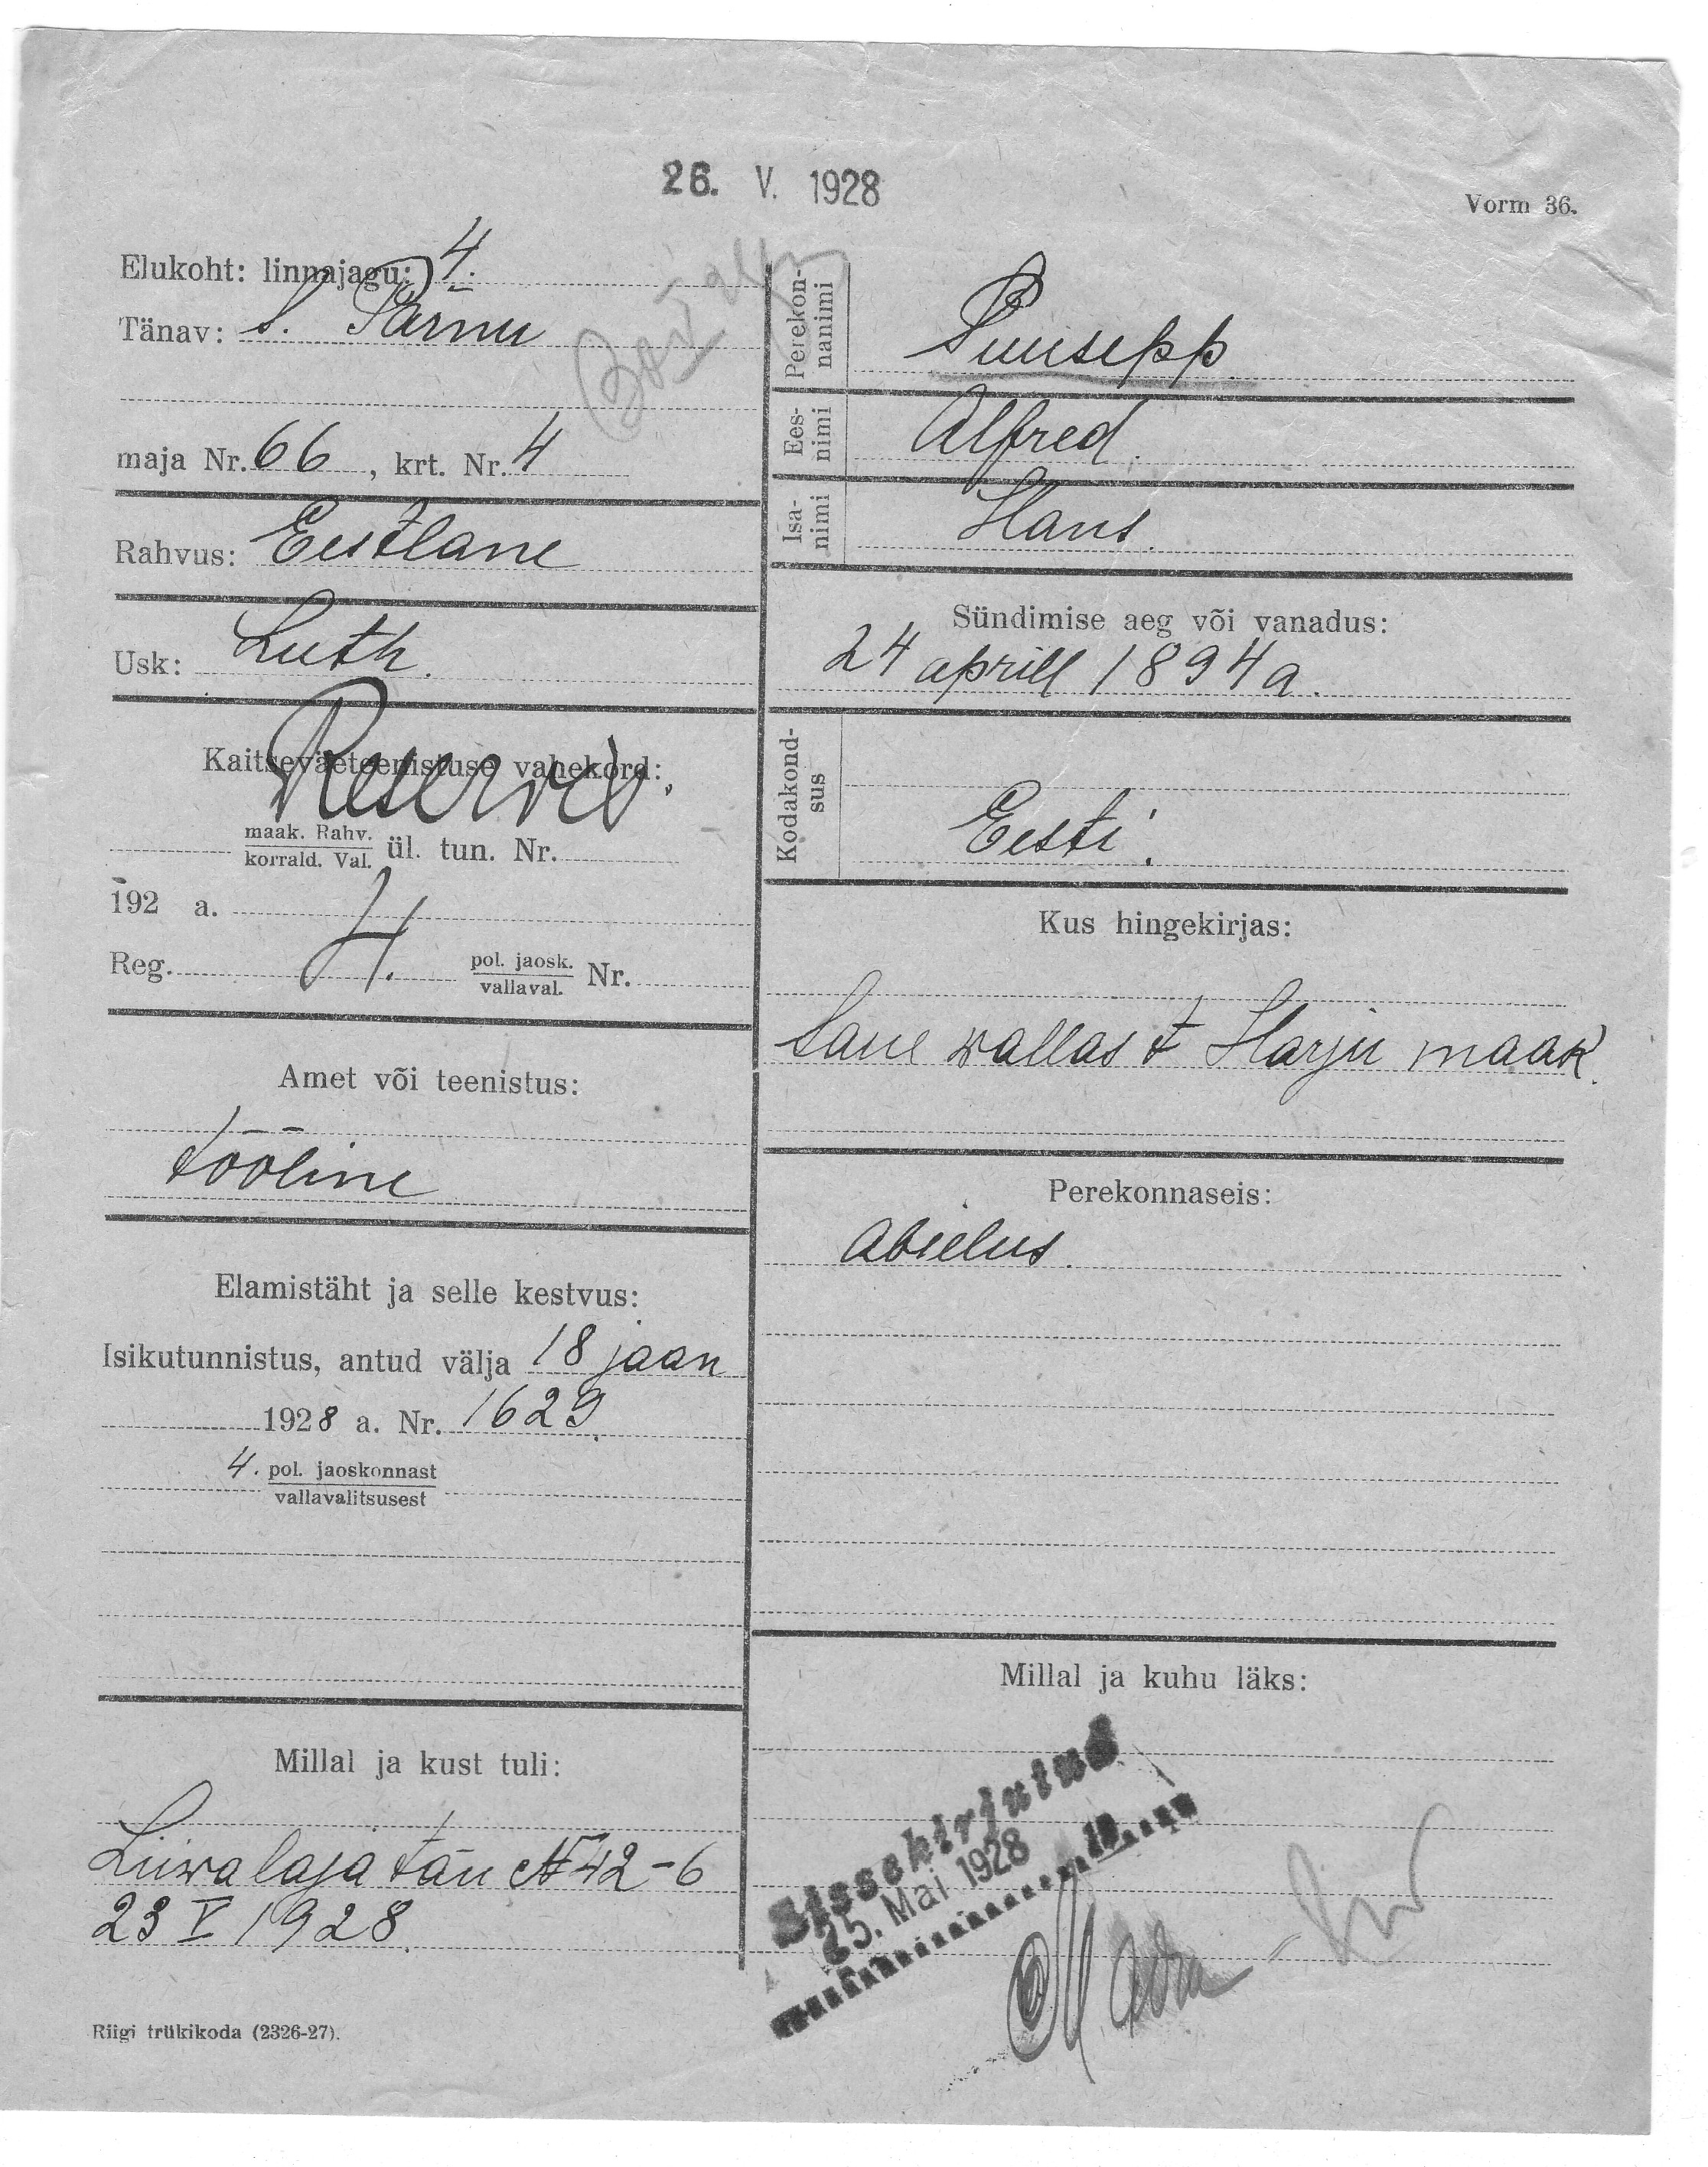 26. V. 1928
Vorm 36.
Elukoht: linnajagu: 4.
Tänav: S. Pärnu
maja Nr. 66, krt. Nr. 4
Rahvus: Eestlane
Usk: Luth.
Kaitseväeteenistuse vahekord:
Reservis.
maak. Rahv.
korrald. Val. ül. tun. Nr.
192 a.
Reg. 4. pol. jaosk.
vallaval. Nr.
Amet või teenistus:
tööline
Elamistäht ja selle kestvus:
Isikutunnistus, antud välja 18 jaan
1928 a. Nr. 1629.
4. pol. jaoskonnast
vallavalitsusest
Millal ja kust tuli:
Liiwalaja tän № 42-6
23 V 1928.
Riigi trükikoda (2326-27).
Perekon-
nanimi
Puusepp.
Ees-
nimi
Alfred.
Isa-
nimi
Hans.
Sündimise aeg või vanadus:
24 aprill 1894 a.
Kodakond-
sus
Eesti.
Kus hingekirjas:
Saue wallast Harju maak.
Perekonnaseis:
Abielus.
Millal ja kuhu läks:
Sissekirjutud
25. Mai 1928